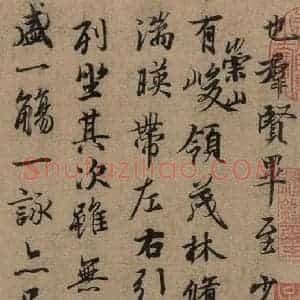 也羣賢畢至少
有崇山峻領茂林脩
湍暎帶左右引
列坐其次雖無
盛一觴一詠亦
Shufaziliao.com